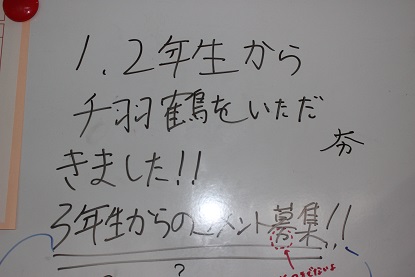 1.2年生から
千羽鶴をいただ
きました!!
夯
3年生からのコメント募集!!